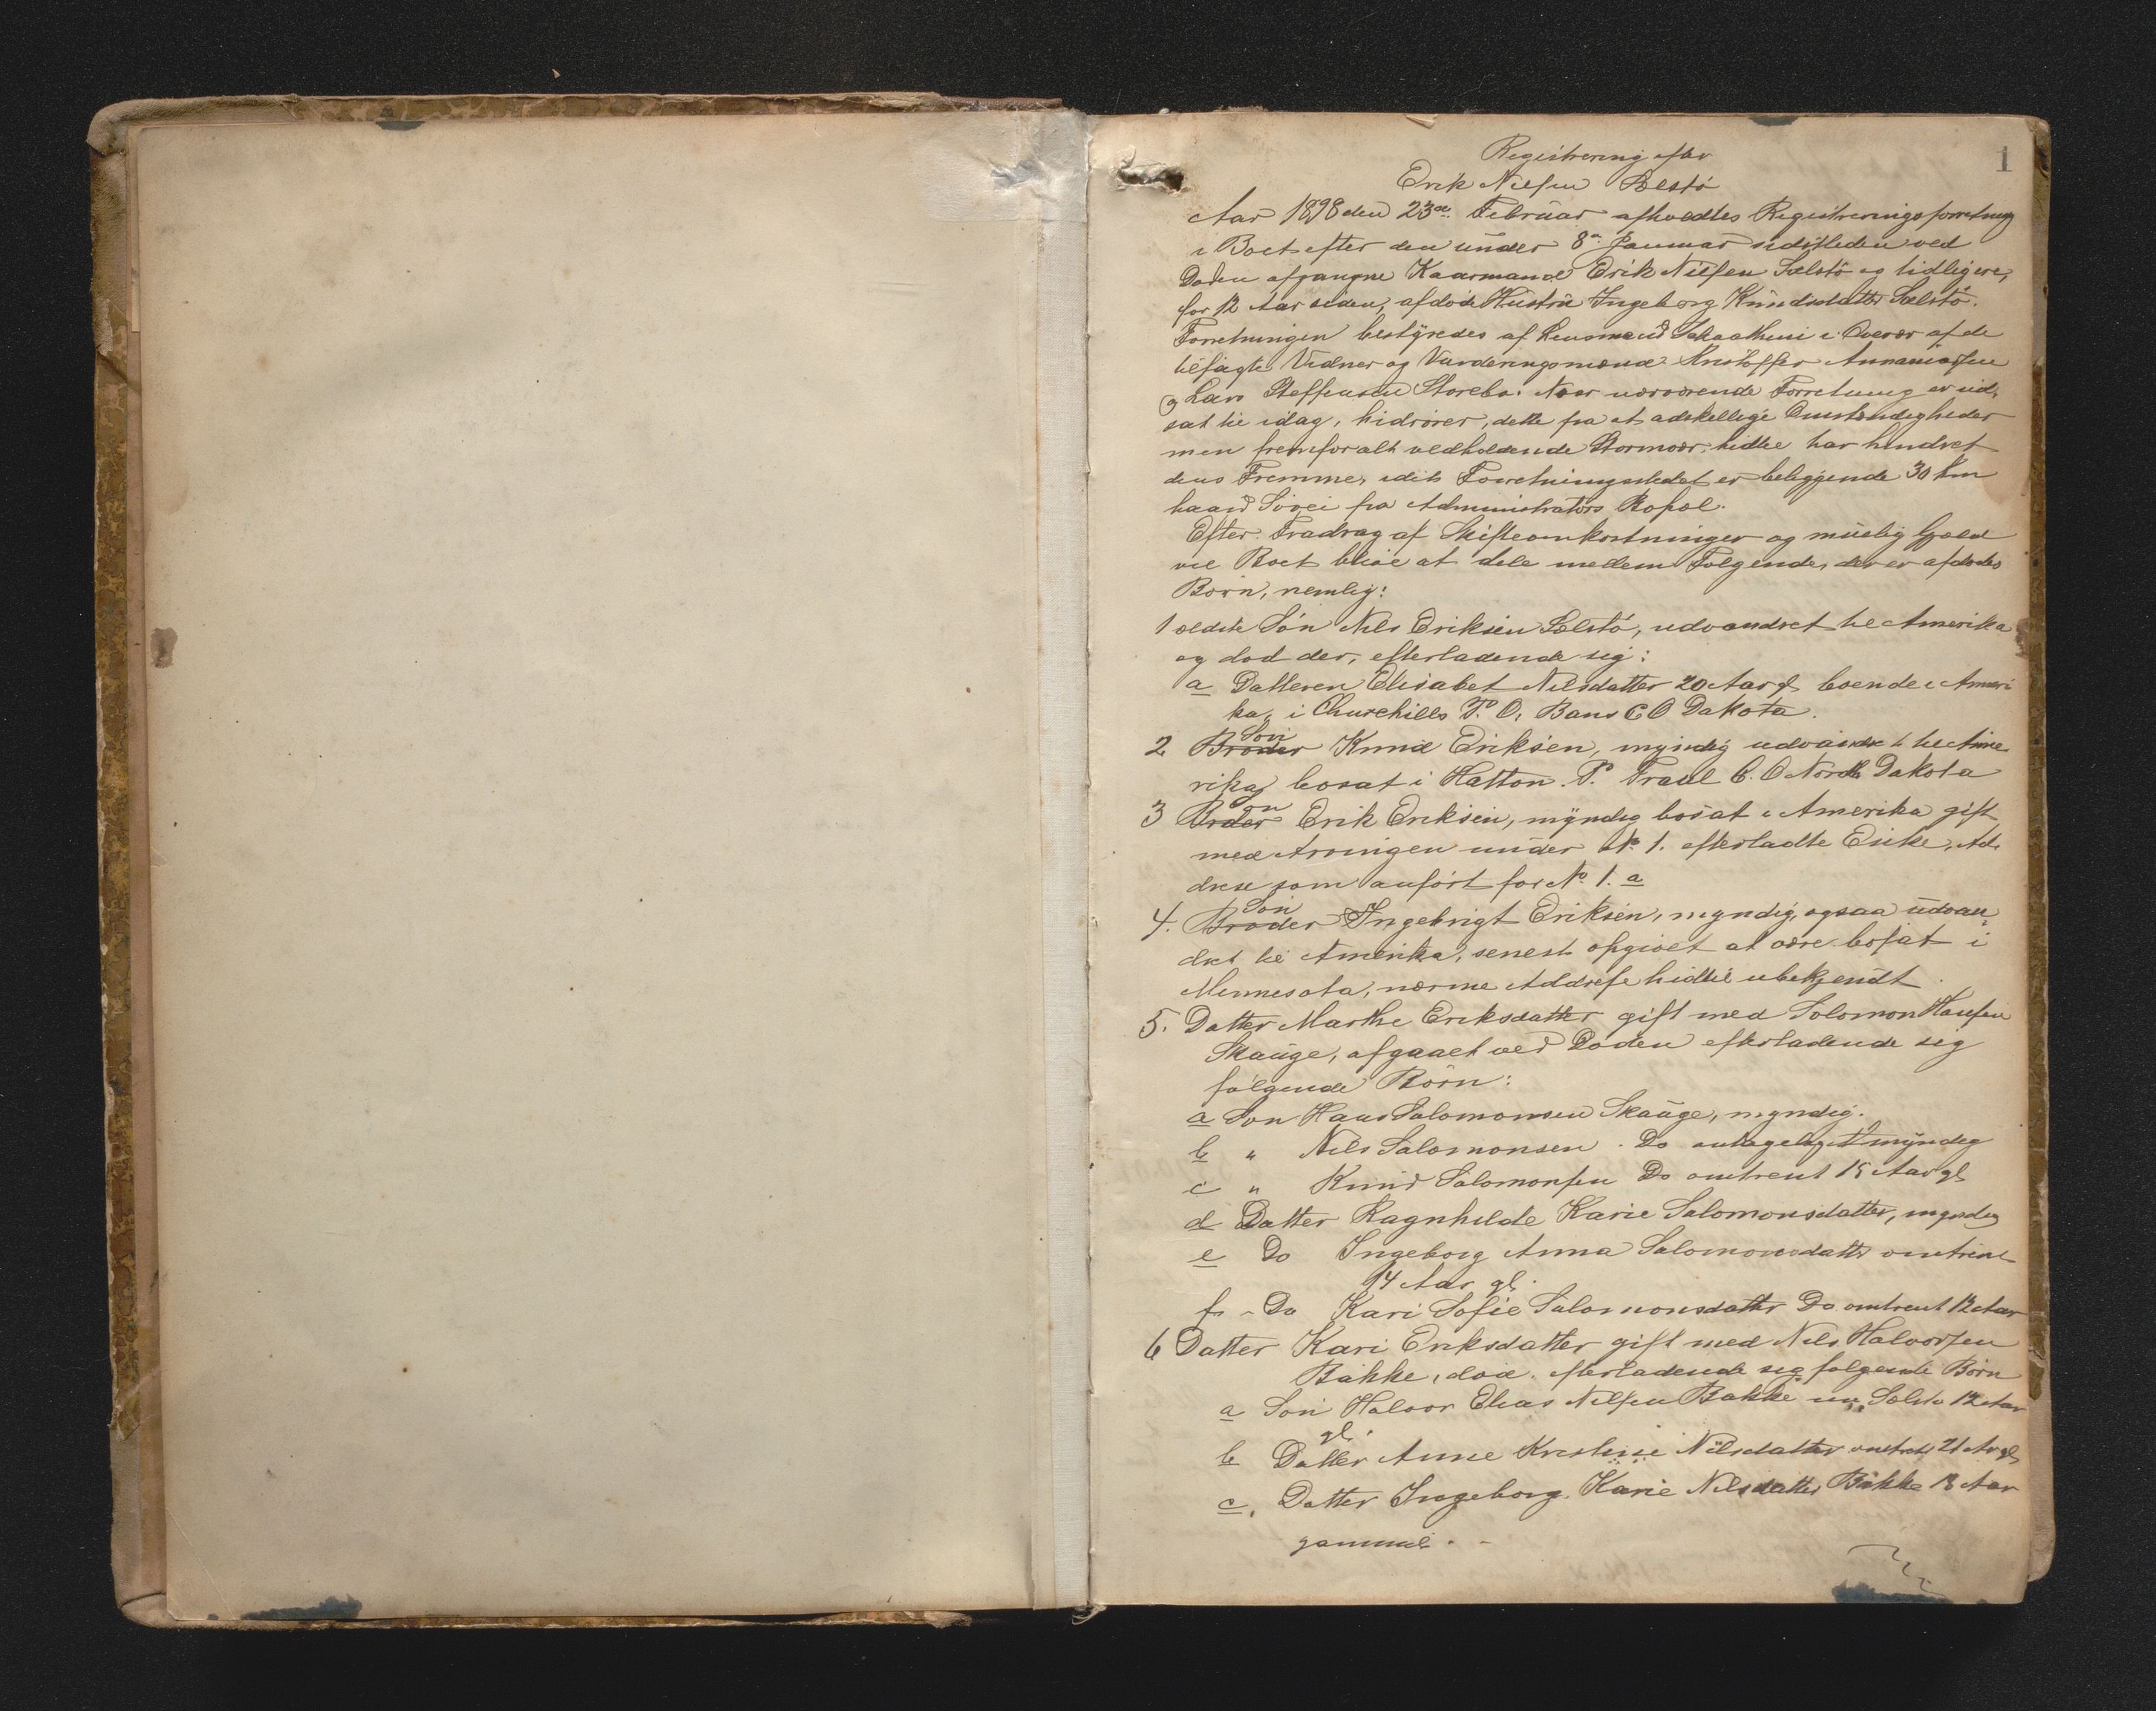 1
Registrering efter
Erik Nilsen Sælstö
Aar 1898 den 23de Februar afholdtes Registreringsforretning
i Boet efter den under 8de Januar sidstleden ved
Döden afgangne Kaarmand Erik Nilsen Sælstö og tidligere,
for 12 Aar siden, afdöde Hustru Ingeborg Knudsdatter Sælstö.
Forretningen bestyredes af Lensmand i Overvær af de
tilsagte Vidner og Vurderingsmænd Kristoffer Annaniassen
og Lars Steffensen Storebö. Naar nærværende Forretning er ud,
sat til idag, hidrører, dette fra at adskellige Omstændigheder
men fremforalt vedholdende Stormveir hidtil har hindret
dens Fremme, idet Forretningsstedet er beliggende 30 km
haard Sövei fra Administrators Bopæl.
Efter Fradrag af Skifteomkostninger og muelig Gjæld
vil Boet blive at dele mellem Følgende, der er afdødes
Börn, nemlig:
1 ældste Sön Nils Eriksen Sælstö, udvandret til Amerika
og död der, efterladende sig:
a Datteren Elisabet Nilsdatter 20 Aar gl. boende i Ameri
ka, i Churchills P. O. Bans C O Dakota.
2 Broder Sön Knud Eriksen, myndig udvandret til Ame
rika bosat i Hatton. P. Traul C. O North Dakota
3 Broder Sön Erik Eriksen, myndig bosat i Amerika gift
med Arvingen under No 1. efterladte Enke, Ad,
dresse som anfört for No 1. a
4. Broder Sön Ingebrigt Eriksen, myndig, ogsaa udvan
dret til Amerika, senest opgivet at være bosat i
Minnesota, nærme Addresse hidtil ubekjendt.
5. Datter Marthe Eriksdatter gift med Solomon Hansen
Skauge, afgaaet ved Döden efterladende sig
fölgende Börn:
a Sön Hans Salomonsen Skauge, myndig.
b " Nils Salomonsen Do antagelig myndig
c " Knud Salomonsen Do omtrent 18 Aar gl
d Datter Ragnhilde Karie Salomonsdatter, myndig
e Do Ingeborg Anna Salomonsdatter omtrent
14 Aar gl.
f - Do Kari Sofie Salomonsdatter Do omtrent 12 Aar
6 Datter Kari Eriksdatter gift med Nils Halvorsen
Bakke, död. efterladende sig fölgende Börn
a Sön Halvor Elias Nilsen Bakke nu Sælstö 12 Aar
gl.
b Datter Anne Kristine Nilsdatter omtrent 21 Aar gl
c. Datter Ingeborg Karie Nilsdatter Bakke 18 Aar
gammel. -